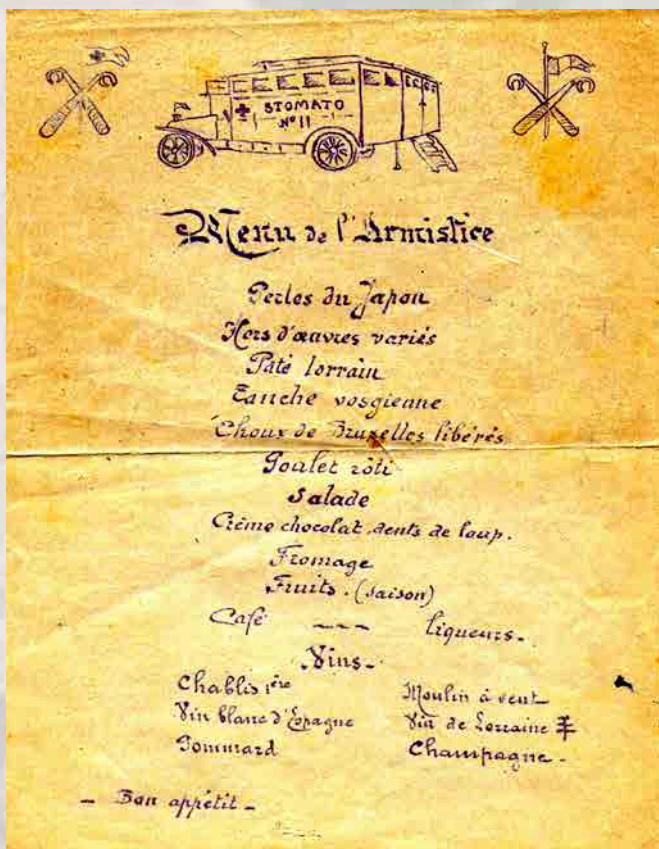 STOMATO
N° 11
Menu de l'Armistice
Perles du Japon
Hors d'œuvres variés
Paté lorrain
Tanche vosgienne
Choux de Bruxelles libérés
Poulet rôti
Salade
Crème chocolat, dents de loup.
Fromage
Fruits. (saison)
Café --- liqueurs.
Vins.
Chablis 1ère Moulin à vent
Vin blanc d'Espagne Vin de Lorraine
Pommard Champagne.
- Bon appétit -